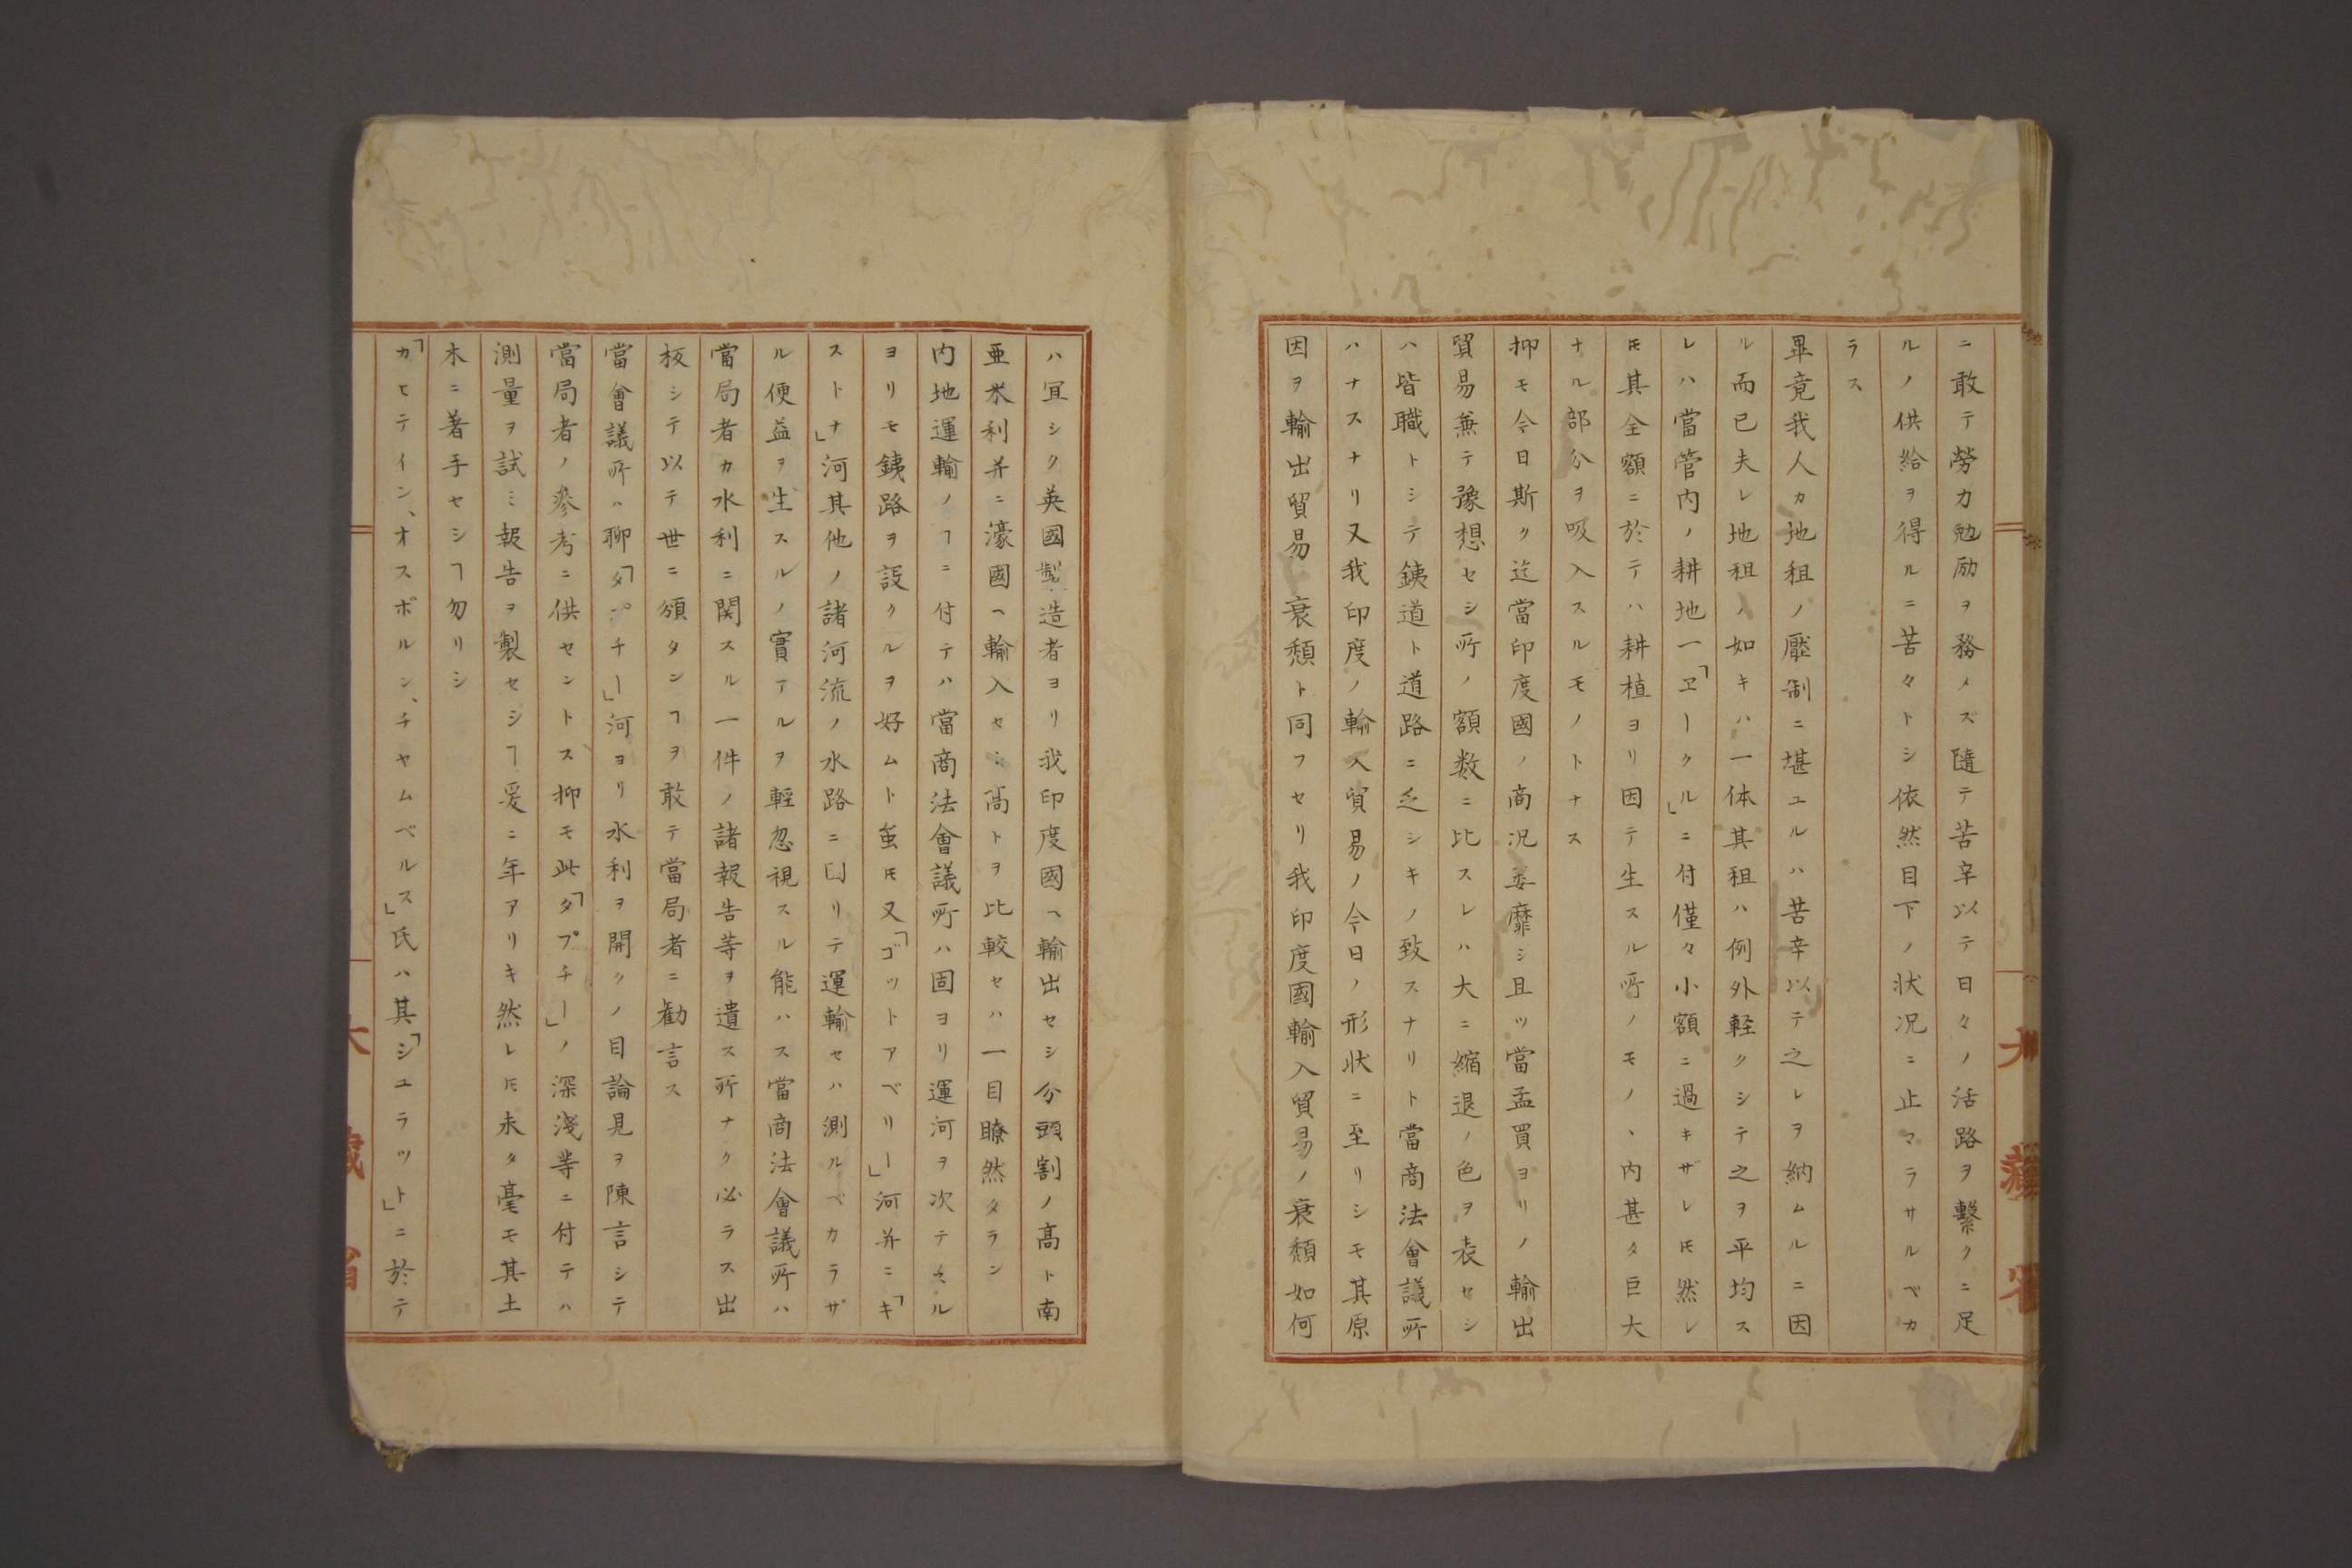 ニ敢テ勞力勉励ヲ務メズ隨テ苦辛以テ日々ノ活路ヲ繋クニ足
ルノ供給ヲ得ルニ苦々トシ依然目下ノ状况ニ止マラサルベカ
ラス
畢竟我人カ地租ノ壓制ニ堪ユルハ苦辛以テ之レヲ納ムルニ因
ル而已夫レ地租ノ如キハ一体其租ハ例外軽クシテ之ヲ平均ス
レハ當管内ノ耕地一「ヱークル」ニ付僅々小額ニ過キザレ𪜈然レ
𪜈其全額ニ於テハ耕植ヨリ因テ生スル所ノモノヽ内甚タ巨大
ナル部分ヲ吸入スルモノトナス
抑モ今日斯ク迄當印度國ノ商况委靡シ且ツ當孟買ヨリノ輸出
貿易兼テ豫想セシ所ノ額数ニ比スレハ大ニ縮退ノ色ヲ表セシ
ハ皆職トシテ銕道ト道路ニ乏シキノ致スナリト當商法會議所
ハナスナリ又我印度ノ輸入貿易ノ今日ノ形状ニ至リシモ其原
因ヲ輸出貿易衰頽ト同フセリ我印度國輸入貿易ノ衰頽如何
大藏省
ハ冝シク英國製造者ヨリ我印度國ヘ輸出セシ分頭割ノ髙ト南
亜米利并ニ濠國ヘ輸入セシ髙トヲ比較セハ一目瞭然タラン
内地運輸ノヿニ付テハ當商法會議所ハ固ヨリ運河ヲ次テスル
ヨリモ銕路ヲ設クルヲ好ムト虽𪜈又「ゴットアベリー」河并ニ「キ
ストナ」河其他ノ諸河流ノ水路ニ因リテ運輸セハ測ルベカラザ
ル便益ヲ生スルノ實アルヲ輕忽視スル能ハス當商法會議所ハ
當局者カ水利ニ関スル一件ノ諸報告等ヲ遺ス所ナク必ラス出
板シテ以テ世ニ頒タンヿヲ敢テ當局者ニ勧言ス
當會議所ハ聊「タプチー」河ヨリ水利ヲ開クノ目論見ヲ陳言シテ
當局者ノ參考ニ供セントス抑モ此「タプチー」ノ深淺等ニ付テハ
測量ヲ試ミ報告ヲ製セシヿ爰ニ年アリキ然レ𪜈未タ毫モ其土
木ニ著手セシヿ勿リシ
「カピテイン、オスボルン、チャムベルス」氏ハ其「シュラット」ニ於テ
大藏省